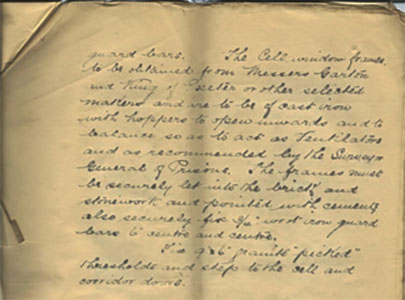 guard bars. The Cell window frames
to be obtained from Messers Garton
and King of Exeter or other selected
matters and are to be of cast iron
with hoppers to open inwards and to
balance so as to act as Ventilators
and as recommended by the Surveyor
General of Prisons. The frames must
be securely let into the brick and
stonework and pointed with cement
also securely fix 3/4" wrot iron guard
bars 6" centre and centre.
Fix 9 x 6 granite "picked"
thresholds and step to the cell and
corridor doors.